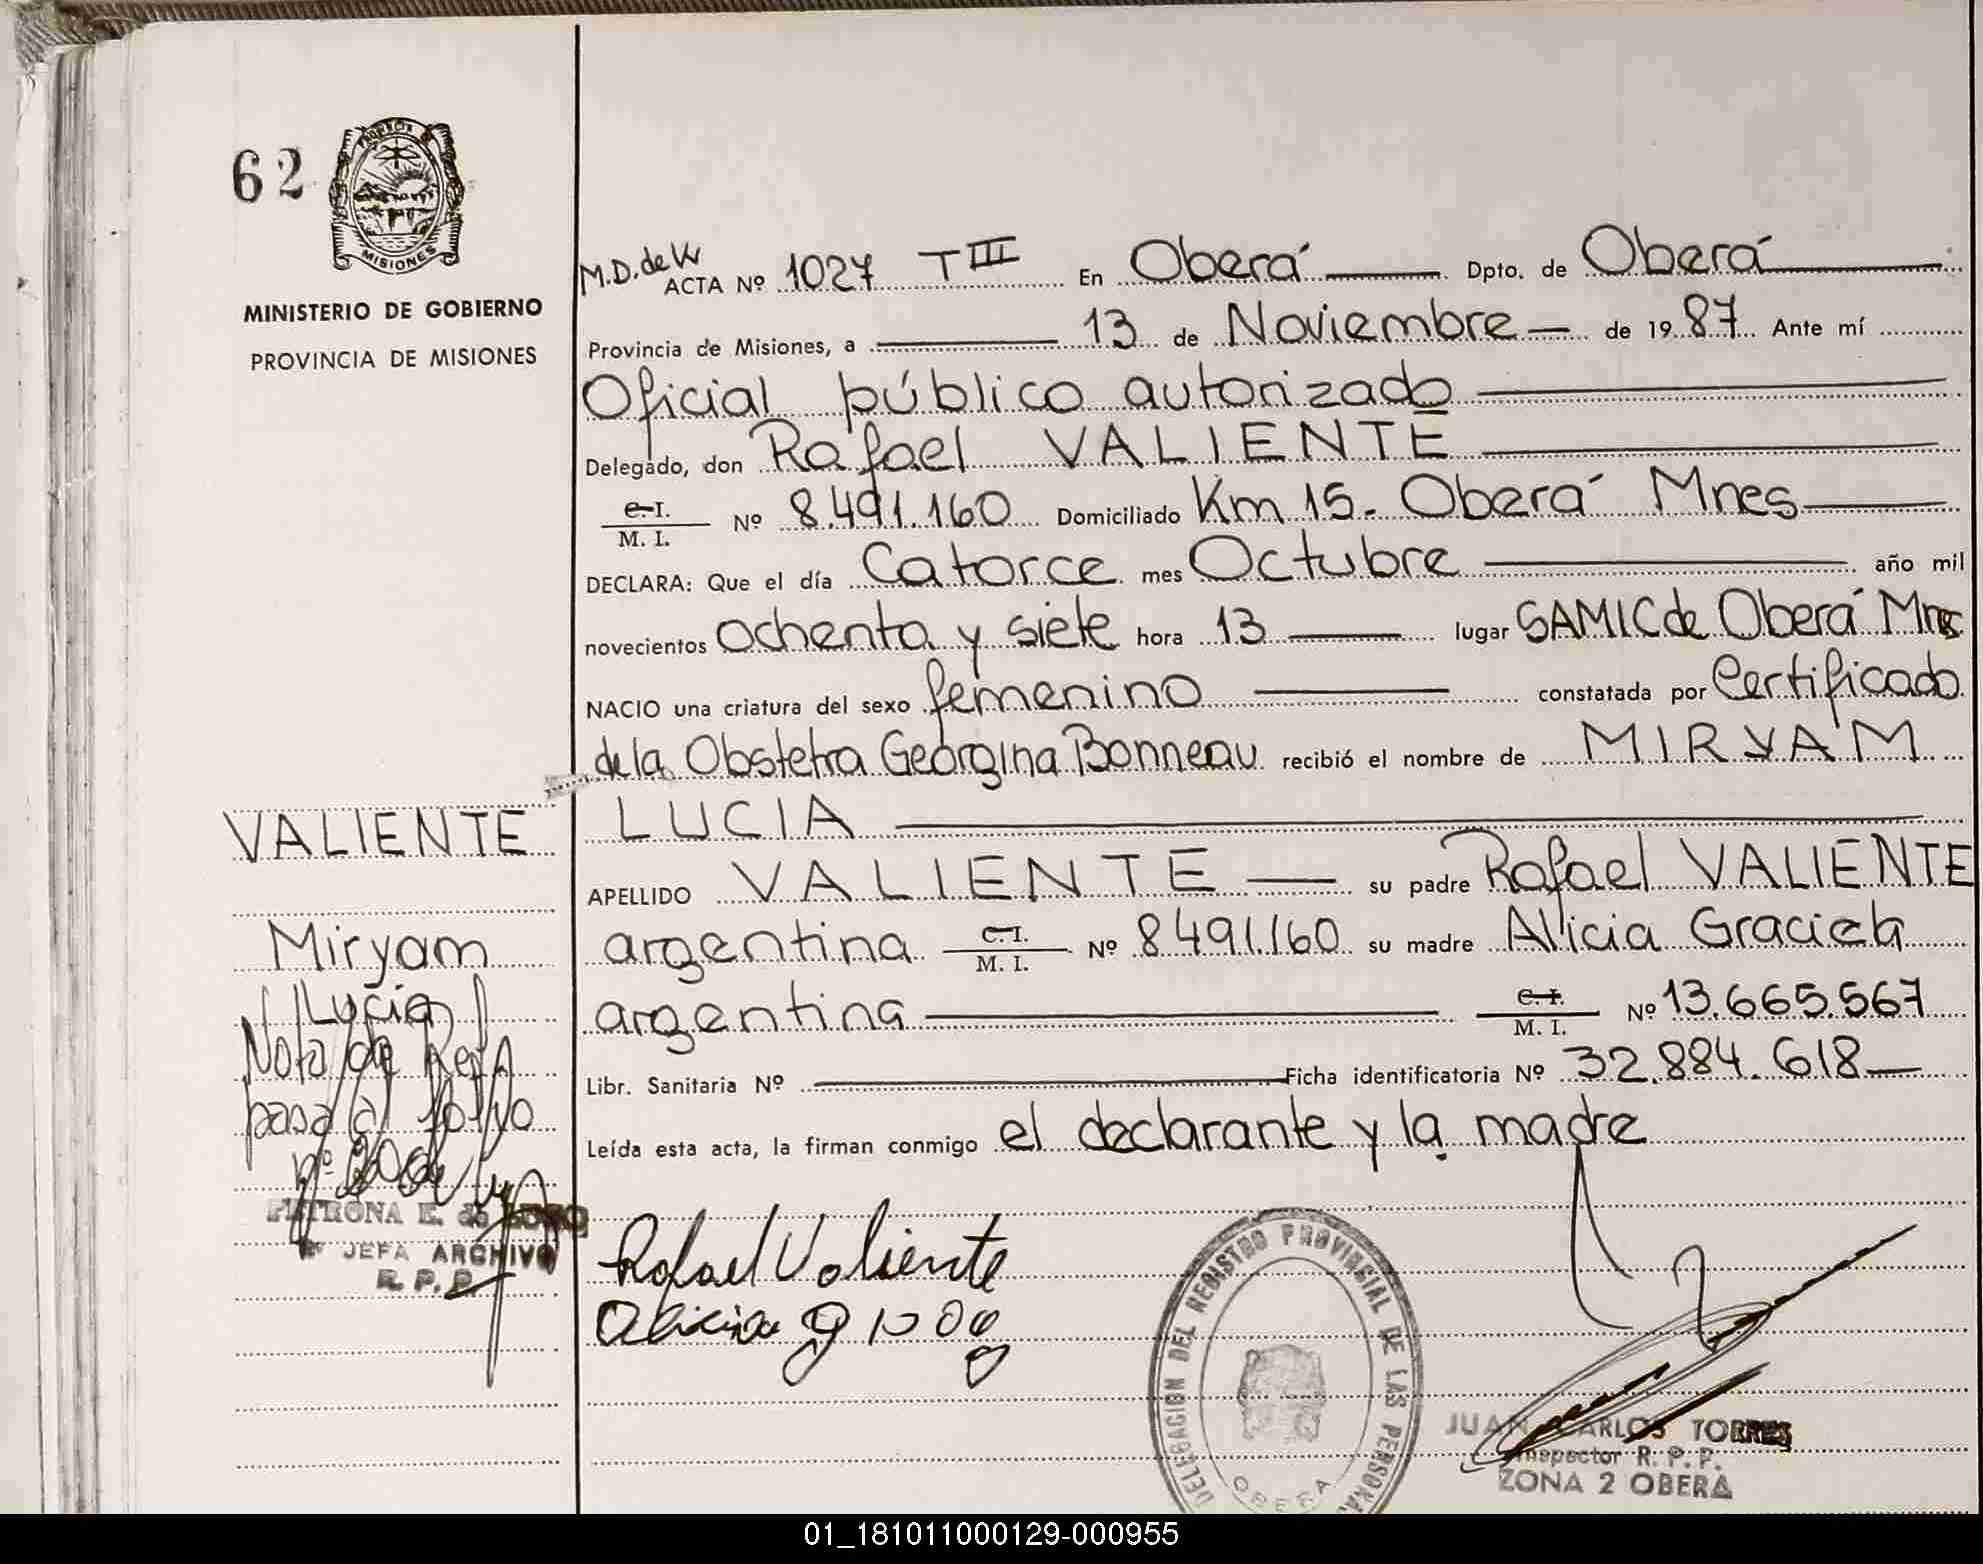 62
MISIONES
MINISTERIO DE GOBIERNO
PROVINCIA DE MISIONES
M.D. de W
ACTA Nº 1027 T III En Oberá Dpto. de Oberá
Provincia de Misiones, a 13 de Noviembre de 1987 Ante mí
Oficial público autorizado
Delegado, don Rafael VALIENTE
C.I.
M. I. Nº 8.491.160 Domiciliado Km 15. Oberá Mnes
DECLARA: Que el día Catorce mes Octubre año mil
novecientos Ochenta y siete hora 13 lugar SAMIC de Oberá Mnes
NACIO una criatura del sexo femenino constatada por Certificado
de la Obstetra Georgina Bonneau recibió el nombre de MIRYAM
LUCIA
APELLIDO VALIENTE su padre Rafael VALIENTE
argentina C.I. M. I. Nº 8491.160 su madre Alicia Graciela
argentina C.I. M. I. Nº 13.665.567
Libr. Sanitaria Nº Ficha identificatoria Nº 32.884.618
Leída esta acta, la firman conmigo el declarante y la madre
VALIENTE
Miryam
Lucia
Nota de Ref
pasa al folio
nº
PETRONA E. de
JEFA ARCHIVO
R. P. P.
Rafael Valiente
Alicia
DELEGACION DEL REGISTRO PROVINCIAL DE LAS PERSONAS
OBERA
JUAN CARLOS TORRES
Inspector R. P. P.
ZONA 2 OBERA
01_181011000129-000955